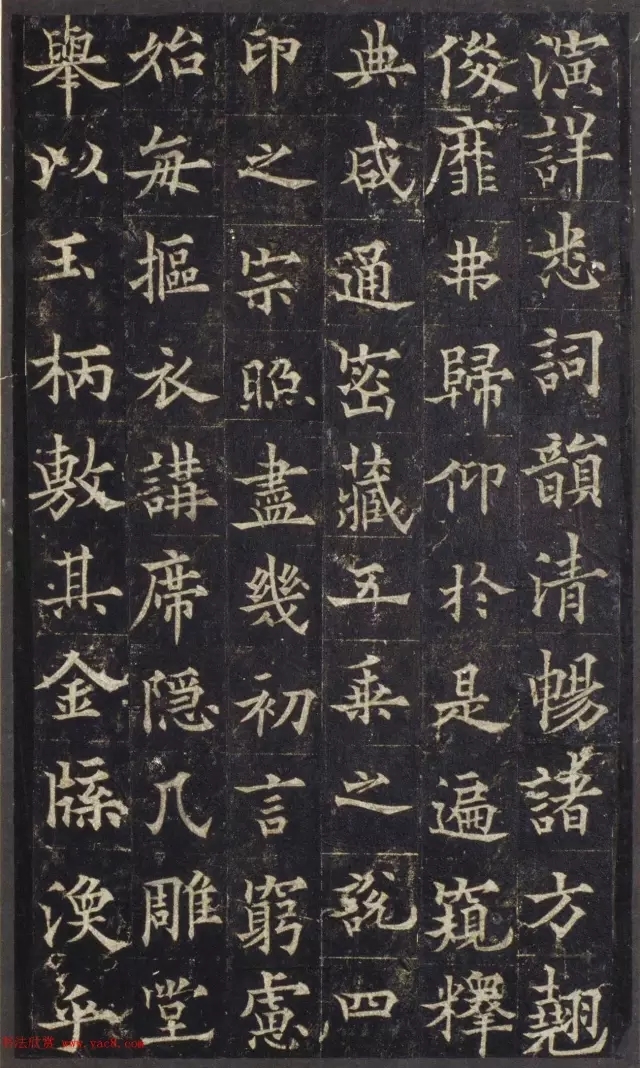 演詳悉詞韻清暢諸方翹
俊靡弗歸仰於是遍窺釋
典咸通密藏五乘之說四
印之宗照盡幾初言窮慮
始每摳衣講席隐几雕堂
舉以玉柄敷其金牒渙乎
书法欣赏 www.yac8.com